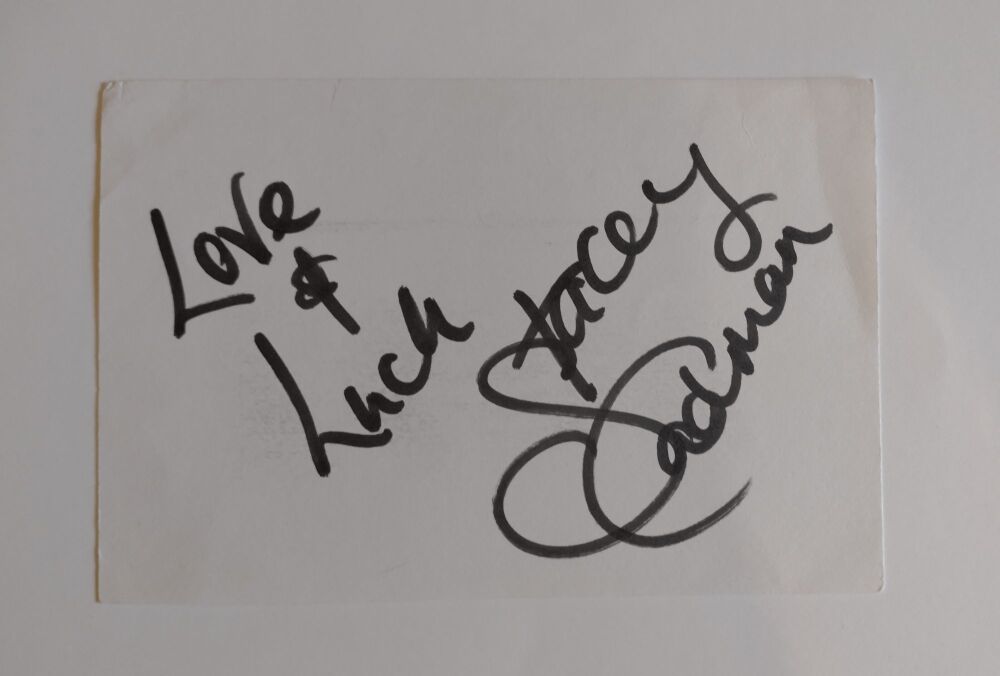 Love
&
Luck
Stacey
Cadman